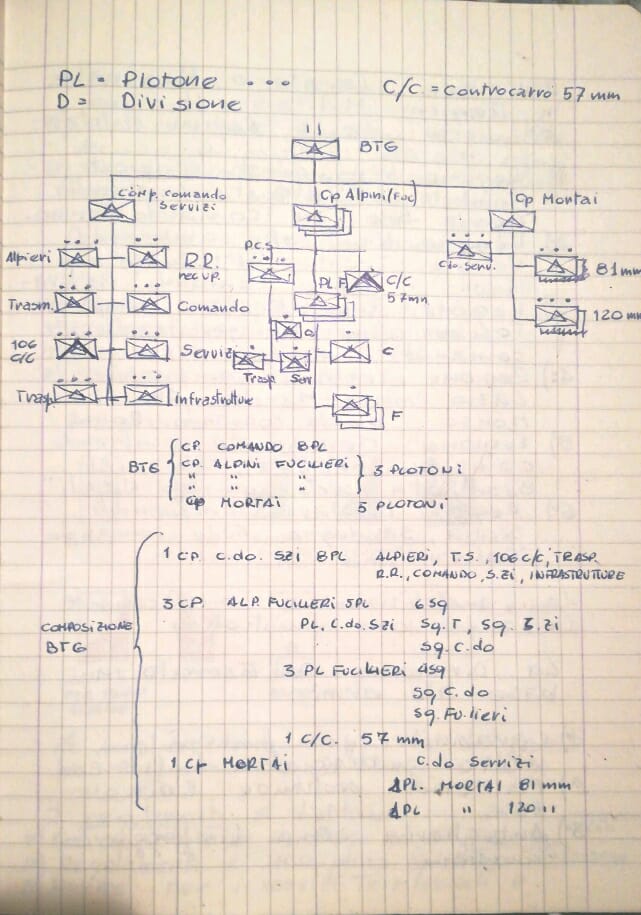 PL = Plotone • • •
C/C = Controcarro 57 mm
D = Divisione
BTG
Comp. comando
Servizi
Cp Alpini/Fuc
Cp Mortai
Alpieri
R.R.
recup.
P.C.S
C.do. Serv.
81 mm
PL F
C/C
57 mm
Trasm.
Comando
120 mm
106
C/C
Servizi
C
Trasp
Serv
Trasp.
infrastrutture
F
BTG
CP. COMANDO 8PL
CP. ALPINI FUCILIERI
" " "
" " "
3 PLOTONI
Cp MORTAI 5 PLOTONI
COMPOSIZIONE
BTG
1 CP. C.do. SZi 8PL ALPIERI, T.S., 106 C/C, TRASP.
R.R., COMANDO, S.Zi, INFRASTRUTTURE
3 CP. ALP. FUCILIERI 5PL 6 SQ
PL. C.do. SZi SQ. T, SQ. S.zi
SQ. C.do
3 PL FUCILIERI 4SQ
SQ C.do
SQ. Fucilieri
1 C/C. 57 mm
1 Cp MORTAI C.do Servizi
1PL. MORTAI 81 mm
1PL " 120 "